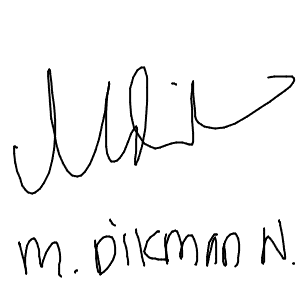 M. DIKMAN N.